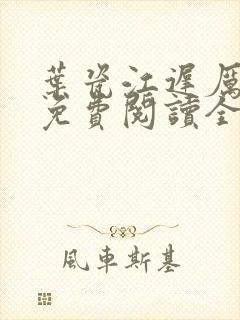 葉瓷江遲厲
免費閱讀全
風車斯基